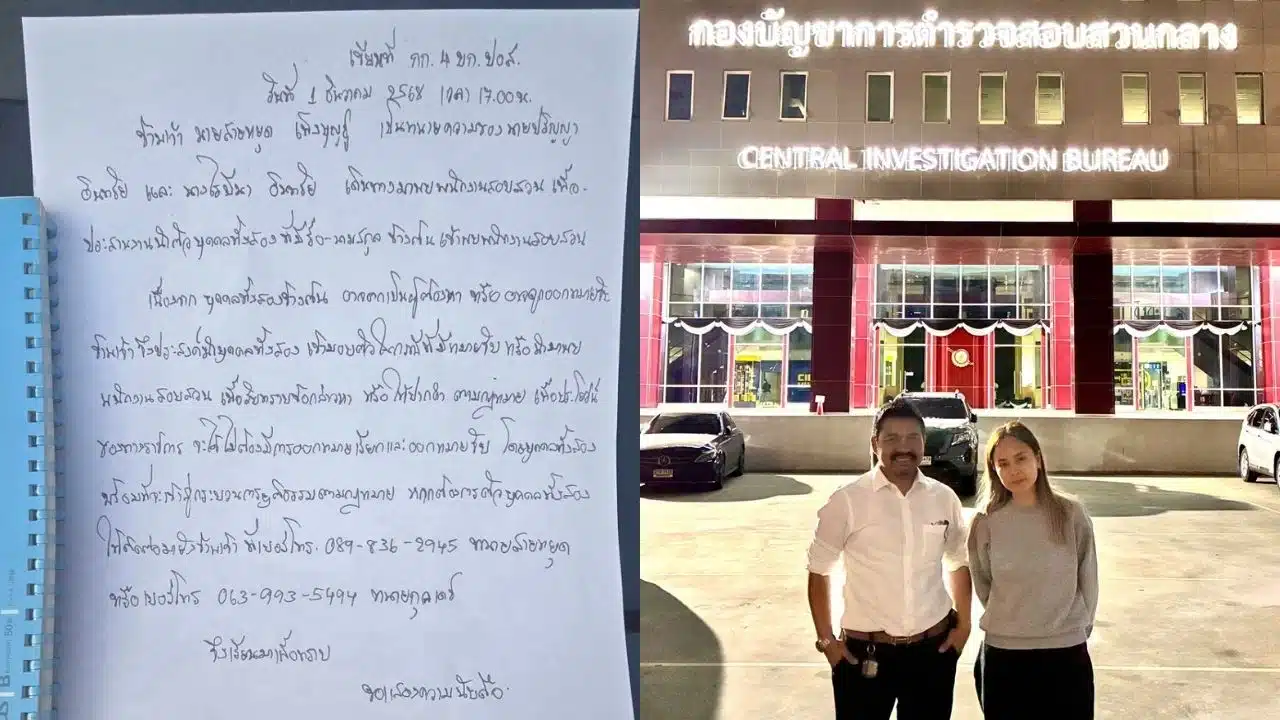 เขียนที่ กก. 4 บก. ปอส.
วันที่ 1 ธันวาคม 2568 เวลา 17.00 น.
ข้าพเจ้า นายสายหยุด เพ็งบุญชู เป็นทนายความของ นายปริญญา
อินทรีย และ นาง อินทรีย เดินทางมาพบพนักงานสอบสวน เพื่อ
ประสานงานนำตัวบุคคลทั้งสอง ที่มีชื่อ-นามสกุล ข้างต้น เข้าพบพนักงานสอบสวน
เนื่องจาก บุคคลทั้งสองข้างต้น อาจตกเป็นผู้ต้องหา หรือ อาจถูกออกหมายจับ
ข้าพเจ้า จึงประสงค์นำบุคคลทั้งสอง เข้ามอบตัวในกรณีที่มีหมายจับ หรือนำมาพบ
พนักงานสอบสวน เพื่อรับทราบข้อกล่าวหา หรือ ให้ปากคำ ตามกฎหมาย เพื่อประโยชน์
ของทางราชการ จะได้ไม่ต้องมีการออกหมายเรียกและออกหมายจับ โดยบุคคลทั้งสอง
พร้อมที่จะเข้าสู่กระบวนการยุติธรรมตามกฎหมาย หากต้องการตัวบุคคลทั้งสอง
ให้ติดต่อมายังข้าพเจ้า ที่เบอร์โทร. 089-836-2945 ทนายสายหยุด
หรือเบอร์โทร 063-993-5494 ทนาย
จึงเรียนมาเพื่อทราบ
ขอแสดงความนับถือ
กองบัญชาการตำรวจสอบสวนกลาง
CENTRAL INVESTIGATION BUREAU